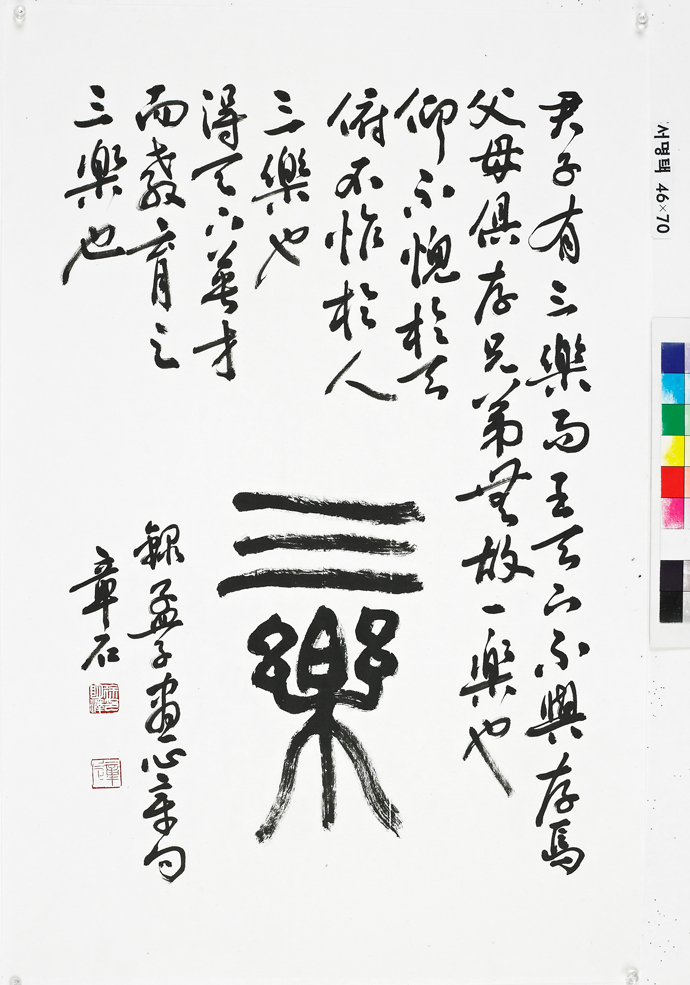 君子有三樂而王天下不與存焉
父母俱存兄弟無故一樂也
仰不愧於天
俯不怍於人
三樂也
得天下英才
而敎育之
三樂也
三樂
錄孟子盡心章句
章石
章石
서명택 46×70